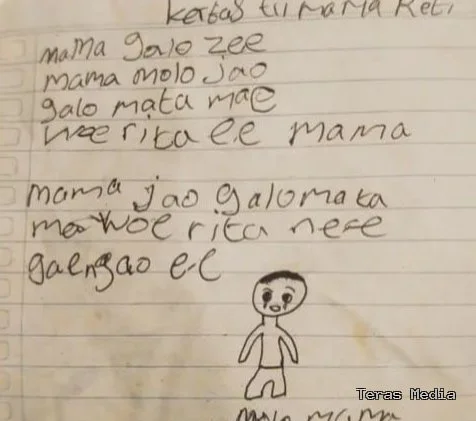 kertas tii mama Reti
mama galo zee
mama molo jao
galo mata mae
woe rita ee mama
mama jao galo mata
mae woe rita nee
gaengao ee
molo mama
Teras Media